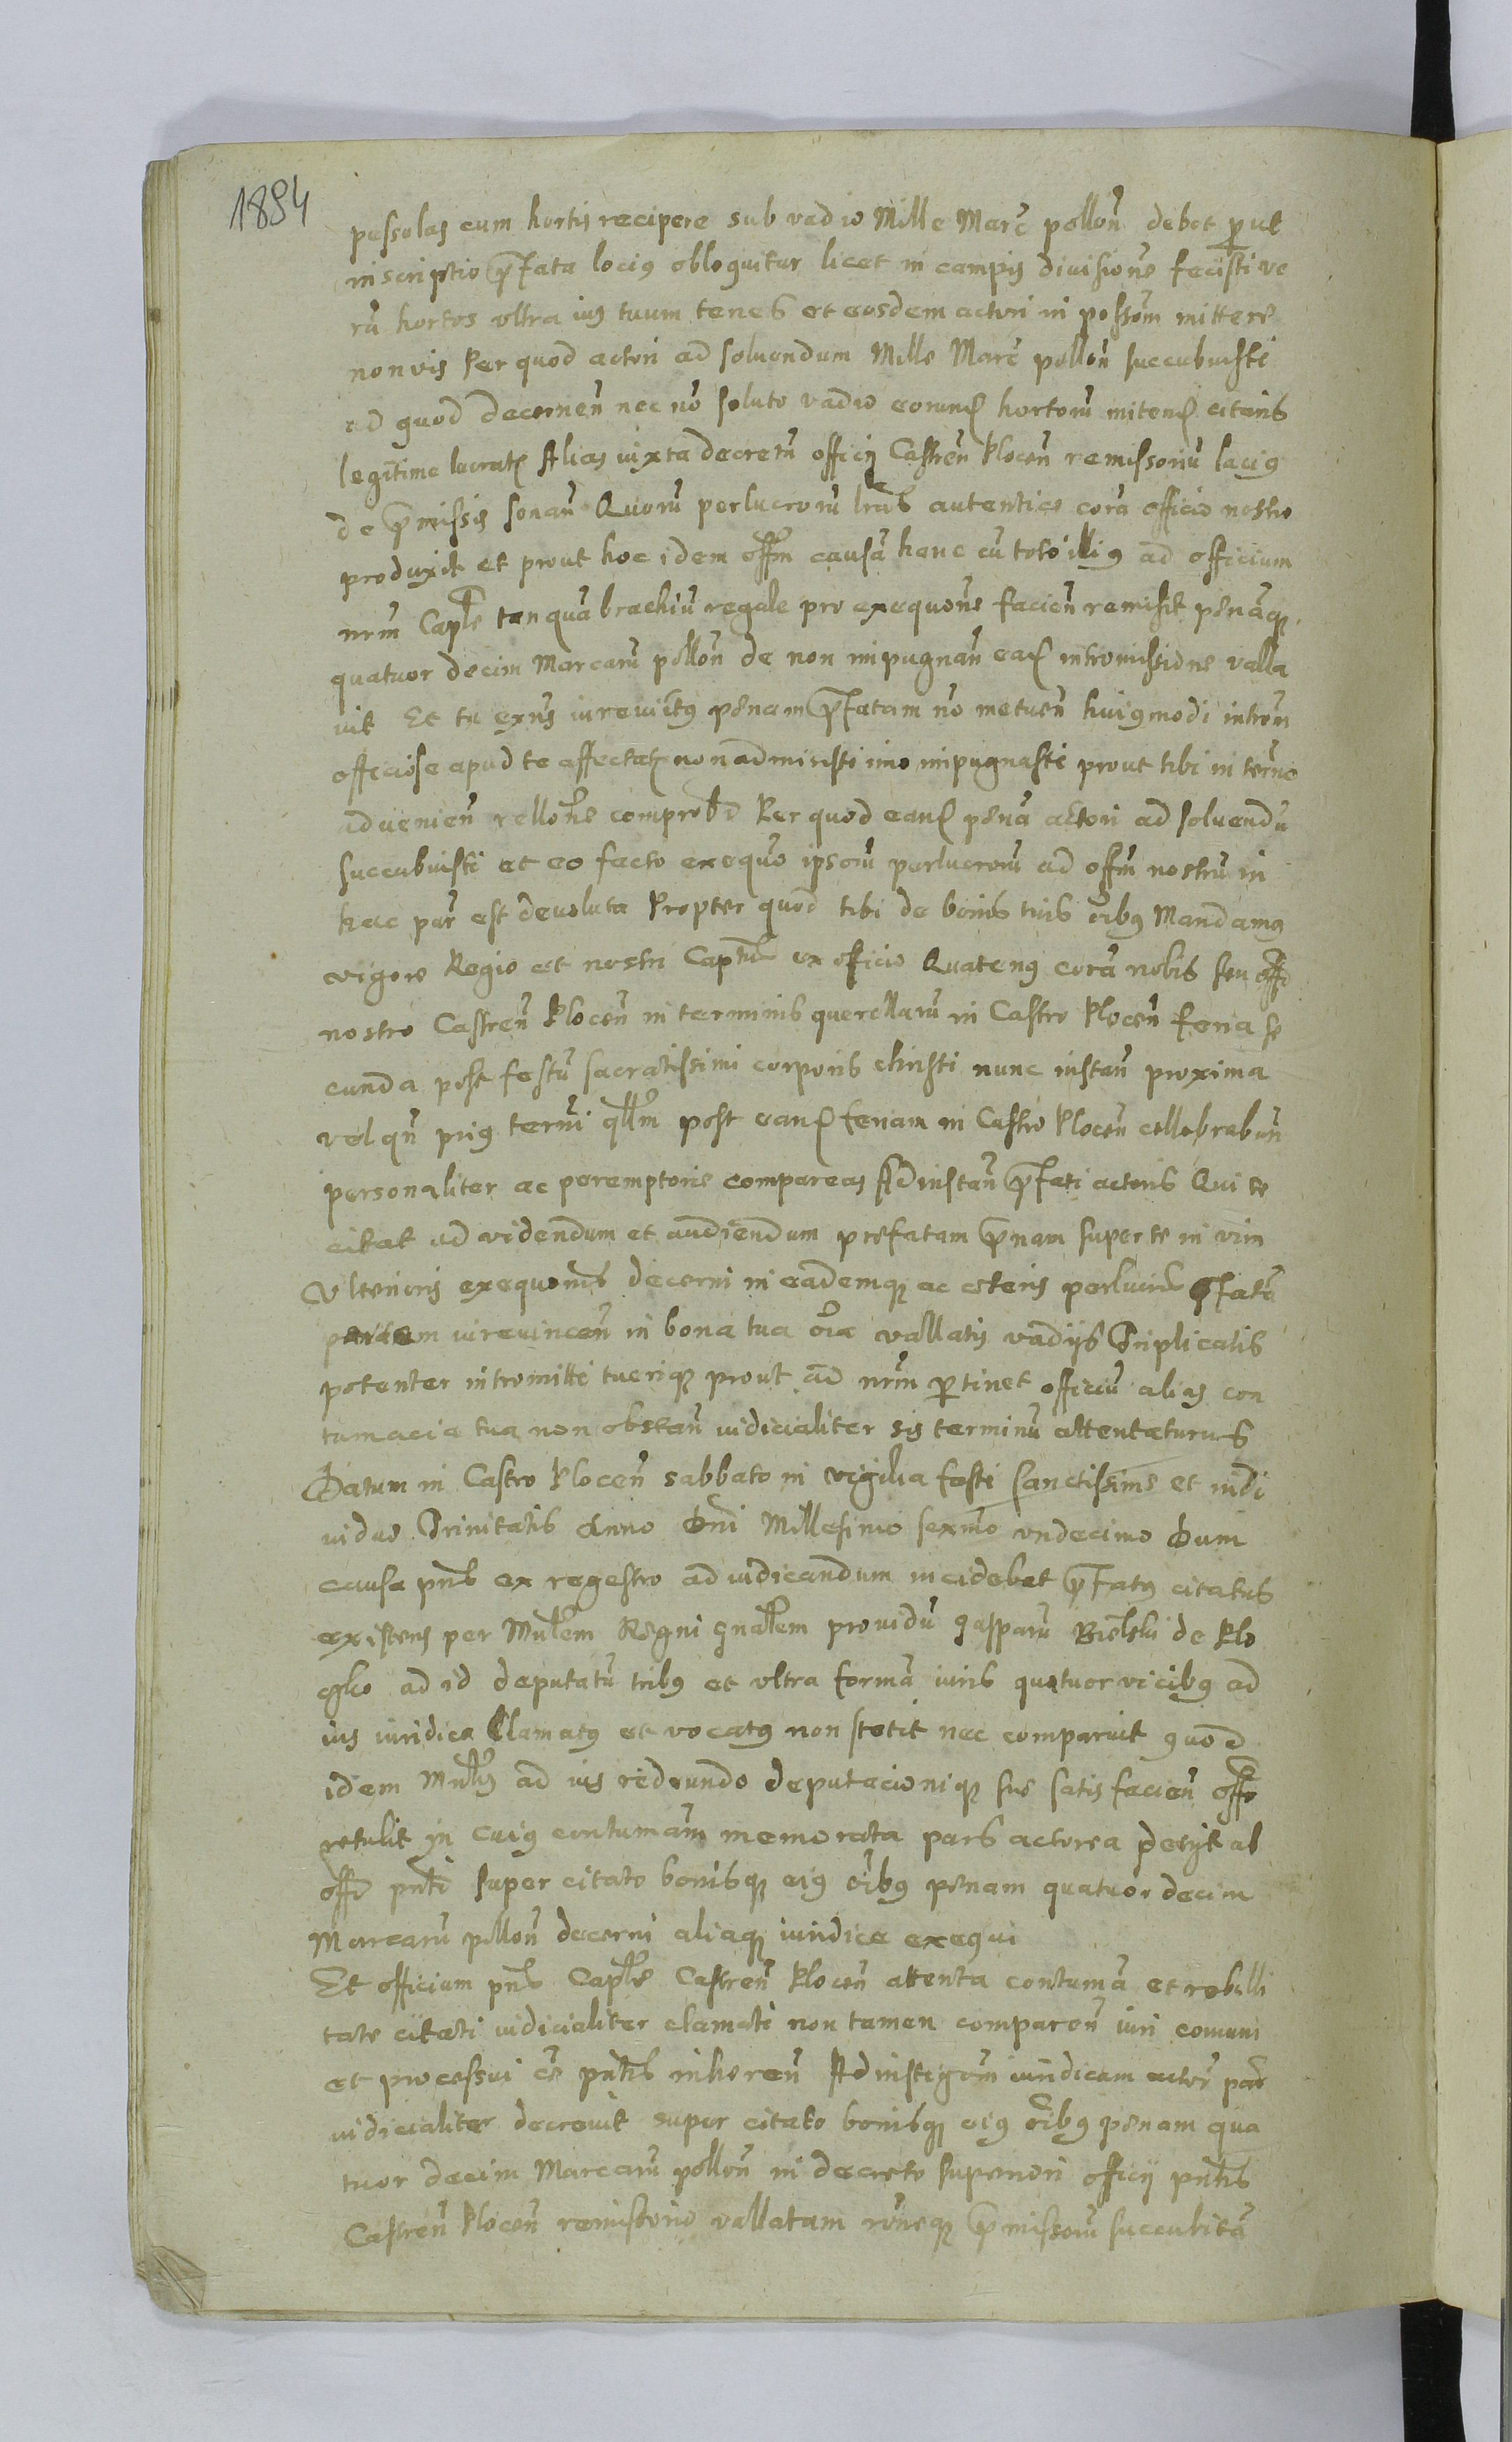 1894
possolas cum hortis recipere sub vadio Mille Marc pollon̄ debet put
inscriptio p̄fata lociꝰ obloquitur licet in campis diuisione fecisti ve
rū hortos vltra iuꝰ tuum tenes et eosdem actori in possom mittere
non vis Per quod actori ad soluendum Mille Marc pollon̄ succubuisti
ad quod decernen̄ nec nō soluto vadio eorund hortorū miten citaris
legitime lucrat Alias iuxta decretū officij Castren̄ Plocen̄ remissoriū laciꝰ
de p̄missis sonan̄ Quorū perlucrorū lras autentice corā officio nostro
produxit et prout hoc idem offm causā hanc cū toto illiꝰ ad officium
nrm Caple tanquā brachiū regale pro exequone facien̄ remisit penāqꝫ
quatuor decim Marcarū pollon̄ de non impugnan̄ ead intromissione valla
uit Et tu exn̄s iureuictꝰ penam p̄fatam nō metuen̄ huiꝰmodi introm
officiose apud te affectat non admisisti imo impugnasti prout tibi in termo
aduenien̄ rellone comprobd Per quod eand penā actori ad soluendū
succubuisti et eo facto exequo ipsorū perlucrorū ad offm nostrū in
hac par est deuoluta Propter quod tibi de bonis tuis oibꝰ Mandamꝰ
vigore Regio et nostri Captus ex officio Quatenꝰ corā nobis seu offo
nostro Castren̄ Plocen̄ in terminis querellarū in Castro Plocen̄ feria se
cunda post festū sacratissimi corporis christi nunc instan̄ proxima
vel qn̄ priꝰ termi qllm post eand feriam in Castro Plocen̄ cellebrabun
personaliter ac peremptorie compareas Ad instan̄ p̄fati actoris Qui te
citat ad videndum et audiendum prefatam p̄nam super te in vim
Vlterioris exequonis decerni in eademqꝫ ac ceteris perlucris p̄fatā
partem iureuincen̄ in bona tua oīa vallatis vadijs Triplicatis
potenter intromitti tueriqꝫ prout ad nrm ptinet officiū alias con
tumacia tua non obstan̄ iudicialiter sis terminū attentaturus
Datum in Castro Plocen̄ sabbato in vigilia festi sanctissime et indi
uidue Trinitatis Anno Dni Millesimo sexmo vndecimo Dum
causa pn̄s ex regestro ad iudicandum incidebat p̄fatꝰ citatus
existens per Mnlem Regni gnalem prouidū Gasparū Bielski de Plo
czko ad id deputatū tribꝰ et vltra formā iuris quatuor vicibꝰ ad
ius iuridice Clamatꝰ et vocatꝰ non stetit nec comparuit quod
idem Mnlis ad ius redeundo deputacioniqꝫ sue satis facien̄ offo
retulit In cuiꝰ contumam memorata pars actorea petijt ab
offo pnti super citato bonisqꝫ eiꝰ oibꝰ penam quatuor decim
Marcarū pollon̄ decerni aliaqꝫ iuridice exequi
Et officium pn̄s Caple Castren̄ Plocen̄ attenta contumā et rebelli
tate citati iudicialiter clamati non tamen comparen̄ iuri comuni
et processui ce pntis inheren̄ Ad instigom iuridicam actoe par
iudicialiter decreuit super citato bonisqꝫ eiꝰ oibꝰ penam qua
tuor decim Marcarū pollon̄ in decreto superiori officij pntis
Castren̄ Plocen̄ remissorio vallatam rōneqꝫ p̄missorū succubitā